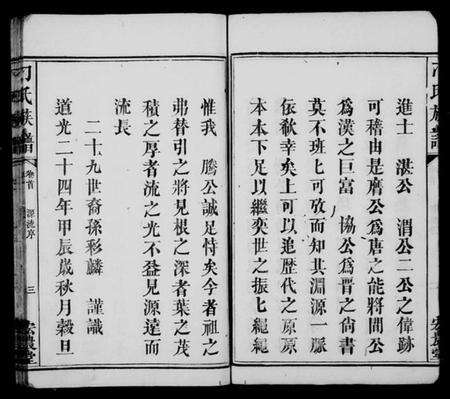 進士　湛公　渭公二公之偉跡
可稽由是磨公為唐之能將間公
為漢之巨富　協公為晉之尚書
莫不班七可攷而知其淵源一脈
依欷幸矣上可以追歷代之原原
本本下足以繼奕世之振七繩繩
惟我　騰公誠足恃矣今者祖之
弗替引之將見根之深者葉之茂
積之厚者流之光不益見源遠而
流長
二十九世裔孫彩麟　謹識
道光二十四年甲辰歲秋月穀旦
刁氏族譜
卷首
源流序
三